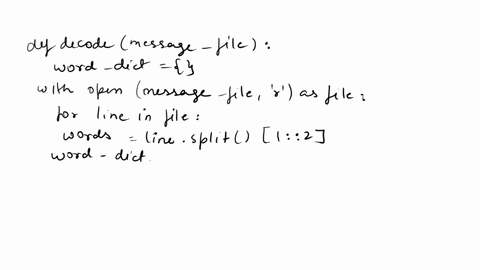 def decode (message_file):
word_dict = {}
with open (message_file, 'r') as file:
for line in file:
words = line.split() [1::2]
word_dict.